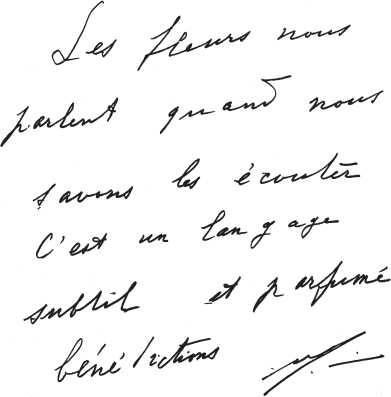 Les fleurs nous
parlent quand nous
savons les écouter
C'est un langage
subtil et parfumé
bénédictions